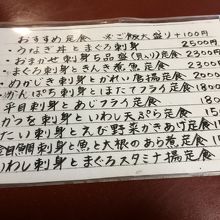 おすすめ定食 ※ご飯大盛り+100円
・うなぎ丼とまぐろ刺身 2500円
・おまかせ刺身5品盛(貝入り)定食 2300
・まぐろ刺身ときんき煮魚定食 2300
・めかじき刺身とかれい唐揚定食
・かんぱち刺身とほたてフライ定食 1800
平目刺身とあじフライ定食
かつを刺身といわし天ぷら定食
たい刺身とえび野菜かきあげ定食
金目鯛刺身と魚と大根のあら煮定食
いわし刺身とまぐろスタミナ揚定食